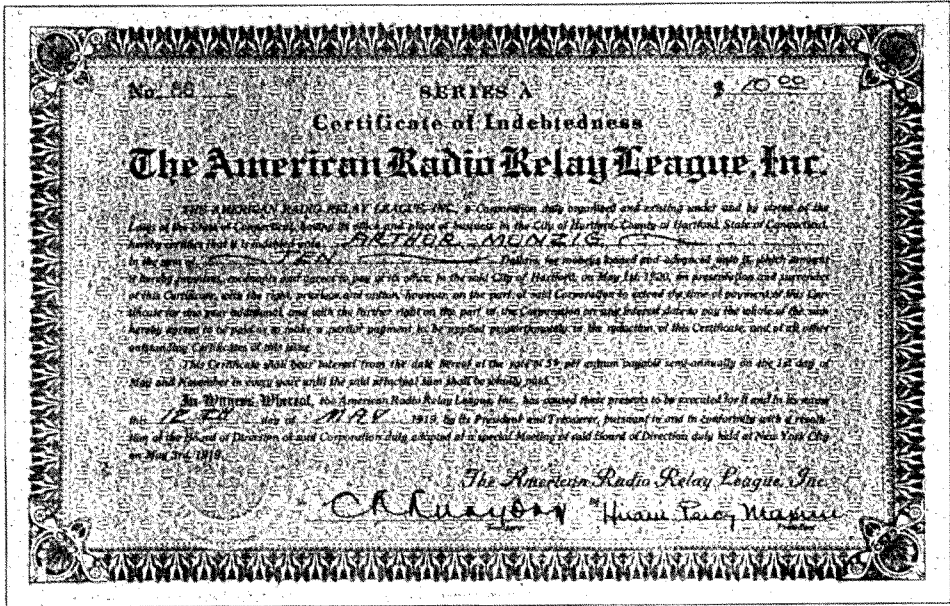 No. 56 SERIES A $ 10.00
Certificate of Indebtedness
The American Radio Relay League, Inc.
THE AMERICAN RADIO RELAY LEAGUE, INC., a Corporation duly organized and existing under and by virtue of the
Laws of the State of Connecticut, having its office and place of business in the City of Hartford, County of Hartford, State of Connecticut,
hereby certifies that it is indebted unto ARTHUR MUNZIG
in the sum of TEN Dollars, for moneys loaned and advanced unto it, which amount
it hereby promises, covenants and agrees to pay at its office, in the said City of Hartford, on May 1st, 1920, on presentation and surrender
of this Certificate, with the right, privilege and option, however, on the part of said Corporation to extend the time of payment of this Cer-
tificate for one year additional, and with the further right on the part of the Corporation on any interest date to pay the whole of the sum
hereby agreed to be paid or to make a partial payment to be applied proportionately in the reduction of this Certificate, and of all other
outstanding Certificates of this issue.
This Certificate shall bear interest from the date hereof at the rate of 5% per annum payable semi-annually on the 1st day of
May and November in every year until the said principal sum shall be wholly paid.
In Witness Whereof, the American Radio Relay League, Inc. has caused these presents to be executed for it and in its name
this 12TH day of MAY 1919, by its President and Treasurer, pursuant to and in conformity with a resolu-
tion of the Board of Direction of said Corporation duly adopted at a special Meeting of said Board of Direction duly held at New York City
on May 3rd, 1919.
The American Radio Relay League, Inc.
Hiram Percy Maxim
Treasurer President